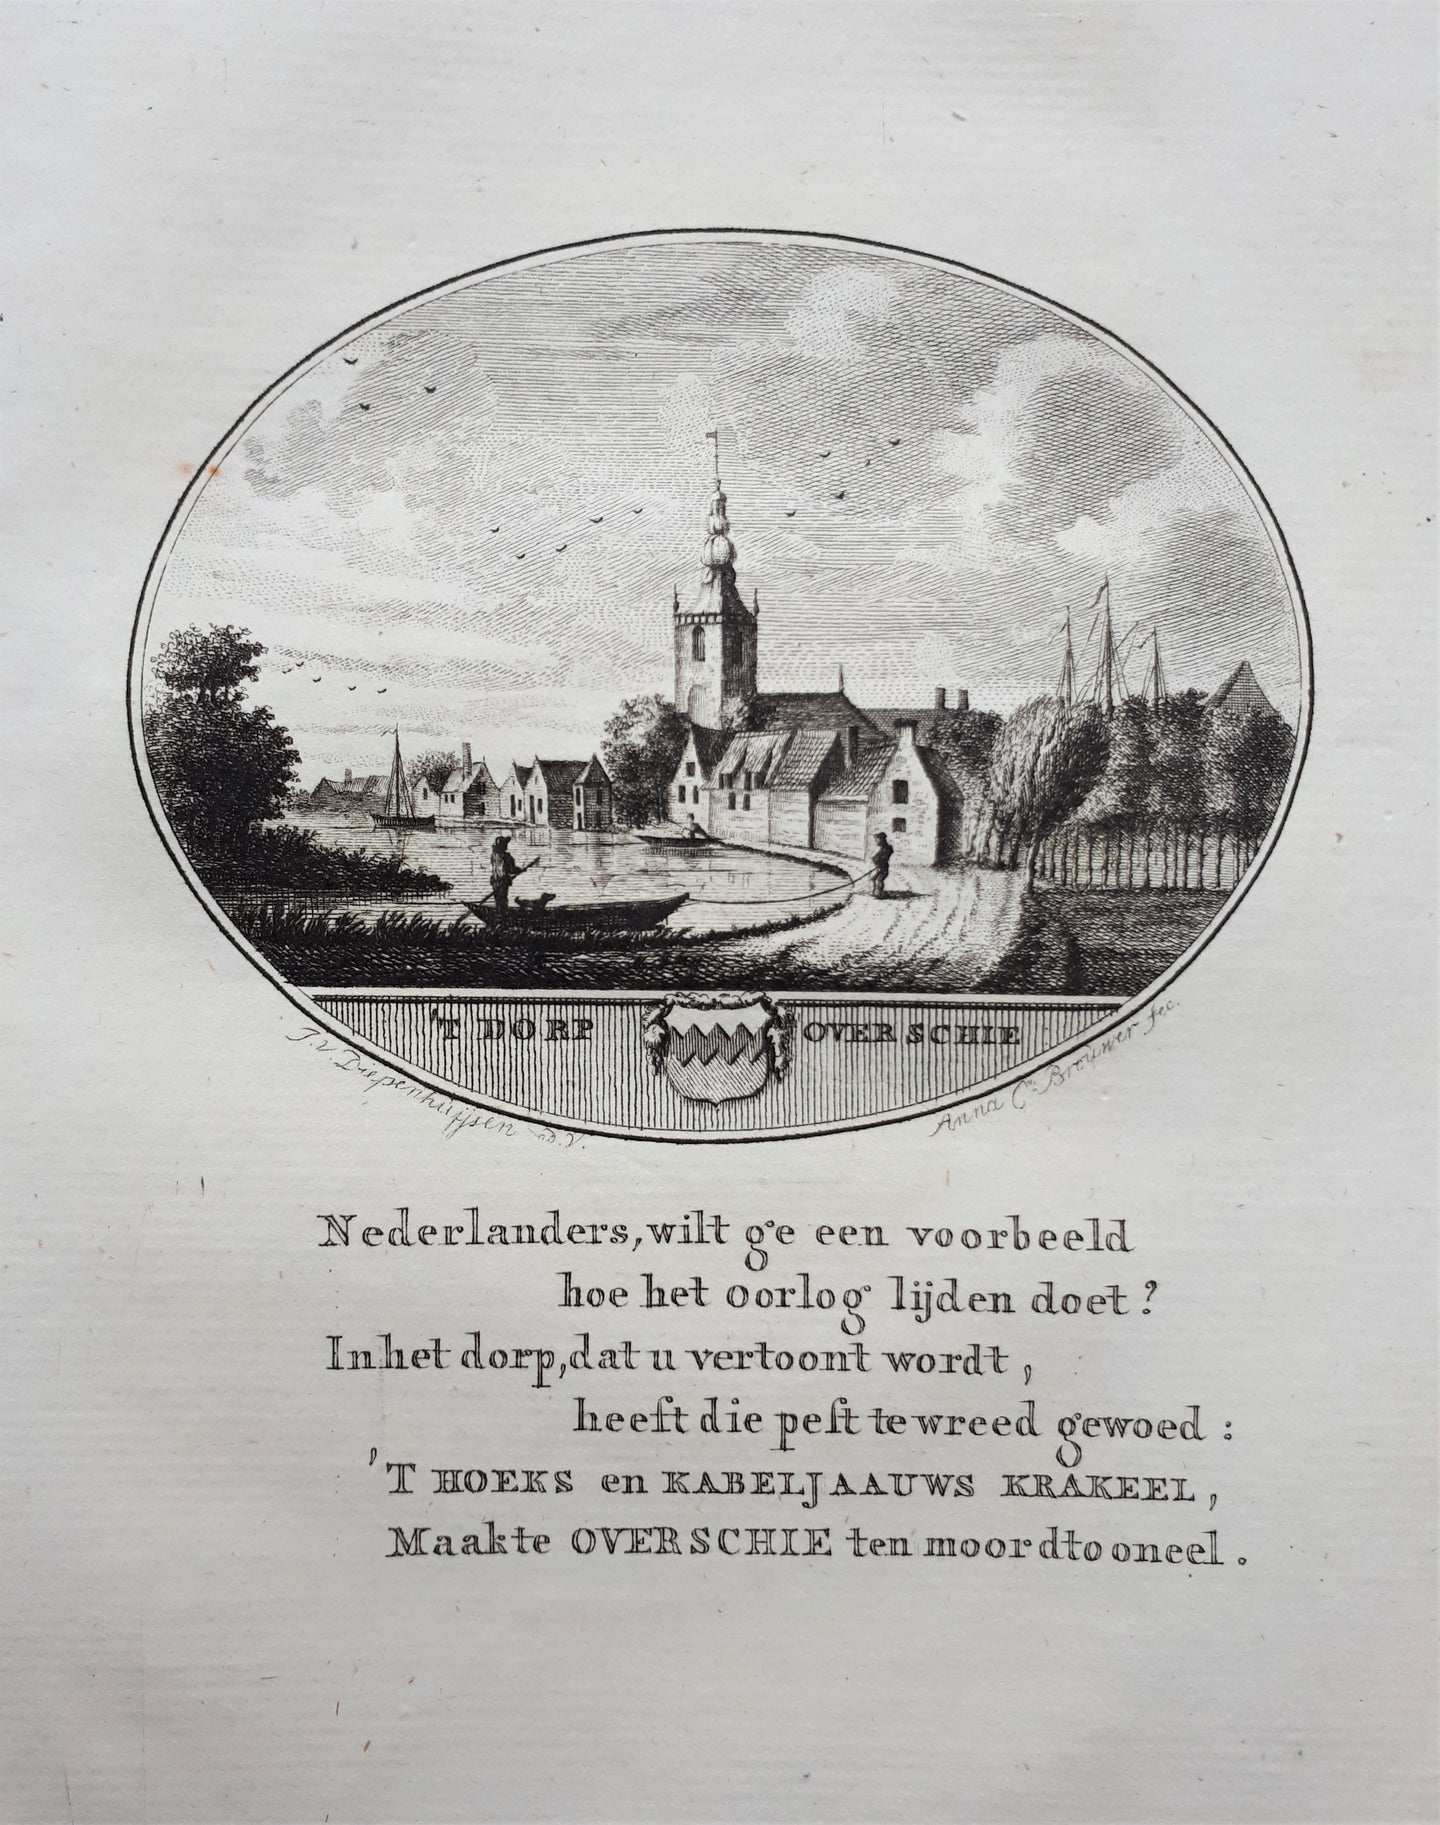 'T DORP OVERSCHIE
J. V. Diepenhuijsen ad. V.
Anna C:na Brouwer fec.
Nederlanders, wilt ge een voorbeeld
hoe het oorlog lijden doet?
In het dorp, dat u vertoont wordt,
heeft die peſt te wreed gewoed:
'T HOEKS en KABELJAAUWS KRAKEEL,
Maakte OVERSCHIE ten moordtooneel.